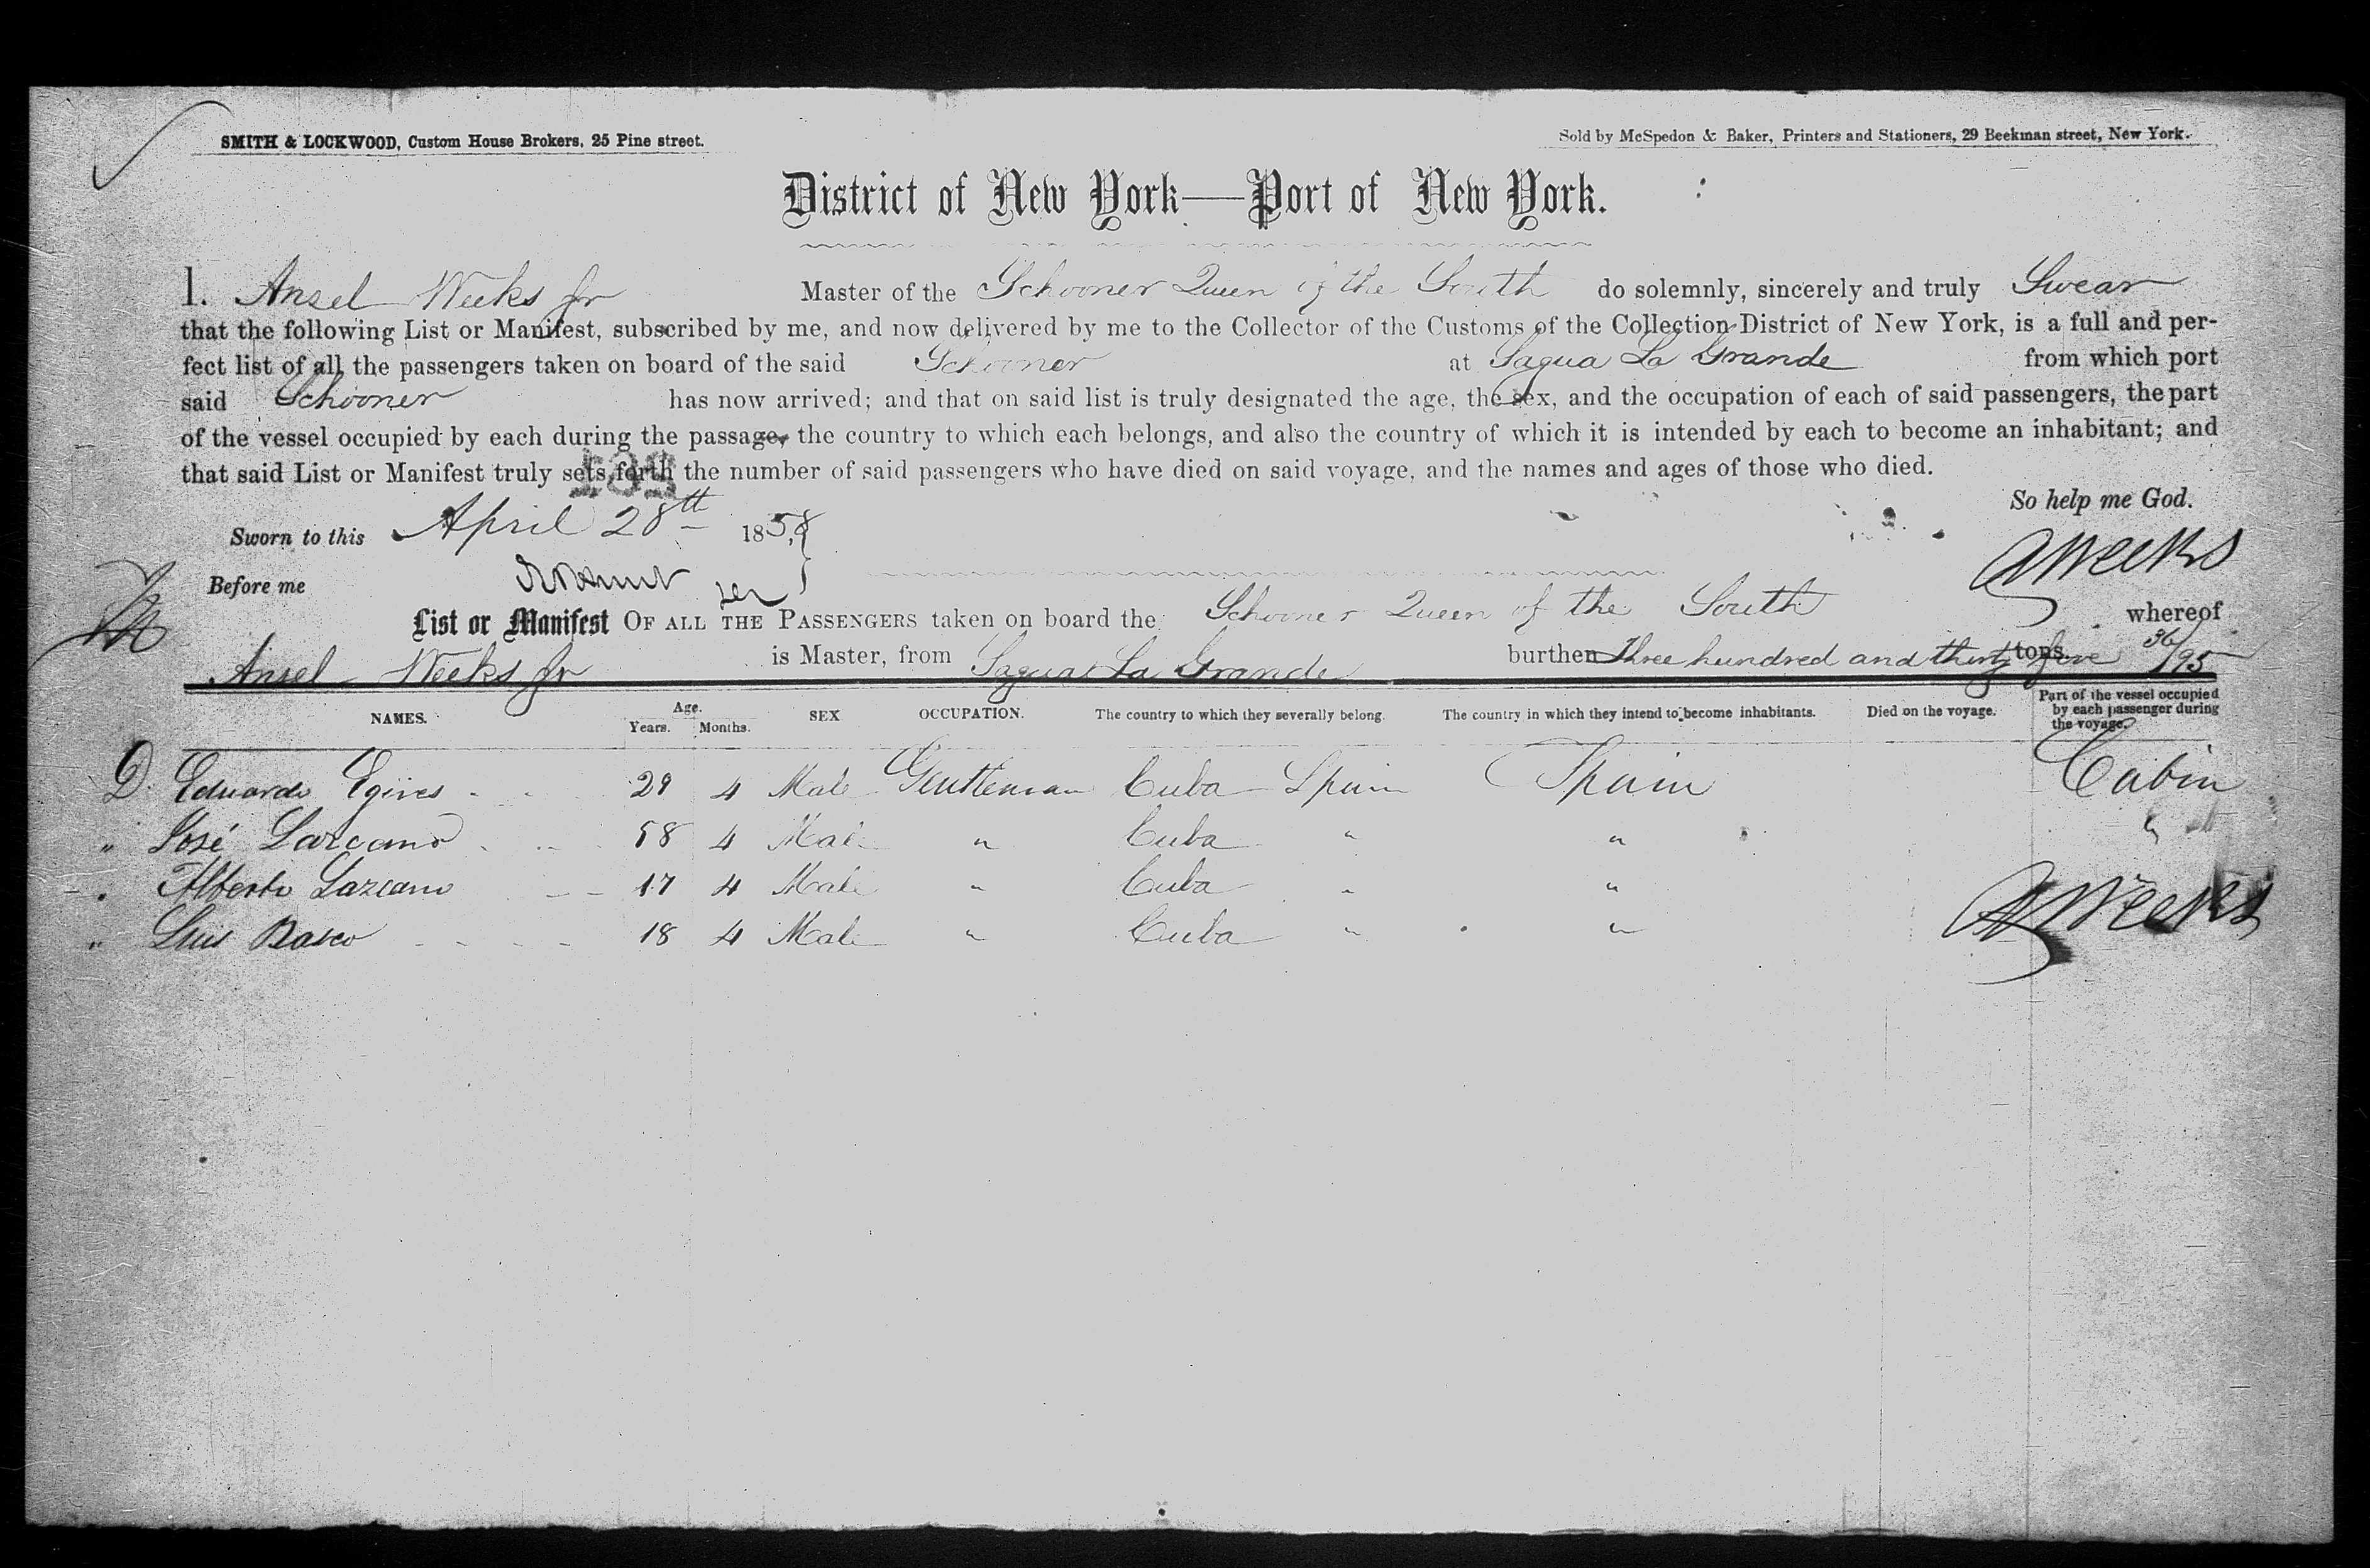 SMITH & LOCKWOOD, Custom House Brokers, 25 Pine street.
Sold by McSpedon & Baker, Printers and Stationers, 29 Beekman street, New York.
District of New York—Port of New York.
I. Ansel Weeks Jr Master of the Schooner Queen of the South do solemnly, sincerely and truly Swear
that the following List or Manifest, subscribed by me, and now delivered by me to the Collector of the Customs of the Collection District of New York, is a full and per-
fect list of all the passengers taken on board of the said Schooner at Sagua La Grande from which port
said Schooner has now arrived; and that on said list is truly designated the age, the sex, and the occupation of each of said passengers, the part
of the vessel occupied by each during the passage, the country to which each belongs, and also the country of which it is intended by each to become an inhabitant; and
that said List or Manifest truly sets forth the number of said passengers who have died on said voyage, and the names and ages of those who died.
So help me God.
Sworn to this April 28th 1858
A Weeks
Before me
List or Manifest OF ALL THE PASSENGERS taken on board the Schooner Queen of the South whereof
Ansel Weeks Jr is Master, from Sagua La Grande burthen Three hundred and thirty five tons. 36/95
NAMES. Age. Years. Months. SEX OCCUPATION. The country to which they severally belong. The country in which they intend to become inhabitants. Died on the voyage. Part of the vessel occupied by each passenger during the voyage.
D. Eduardo 29 4 Male Gentleman Cuba Spain Spain Cabin
" José Lazcano 58 4 Male " Cuba " " "
" Alberto Lazcano 17 4 Male " Cuba " "
" Luis Basco 18 4 Male " Cuba " "
A Weeks